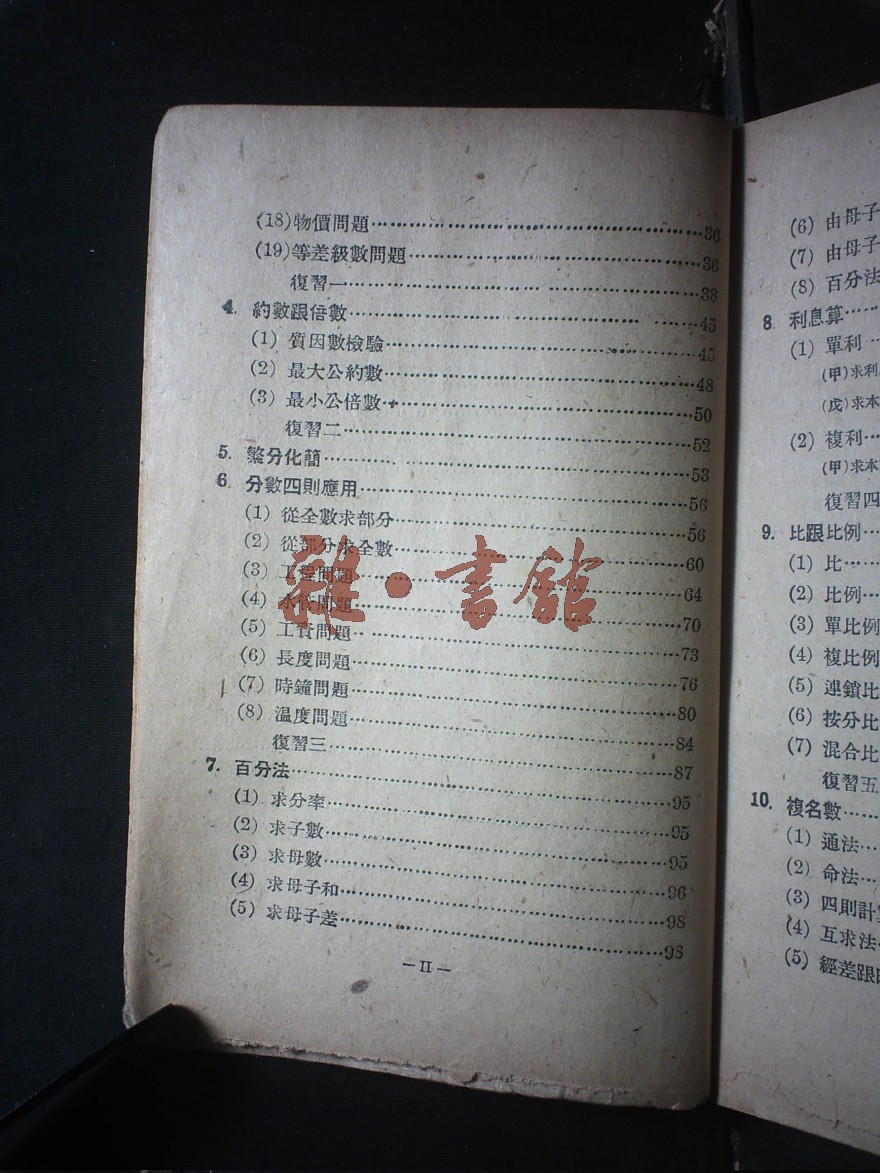 (18)物價問題……36
(19)等差級數問題……36
復習一……38
4. 約數跟倍數……45
(1) 質因數檢驗……45
(2) 最大公約數……48
(3) 最小公倍數……50
復習二……52
5. 繁分化簡……53
6. 分數四則應用……56
(1) 從全數求部分……56
(2) 從部分求全數……60
(3) 工程問題……64
(4) 水管問題……70
(5) 工資問題……73
(6) 長度問題……76
(7) 時鐘問題……80
(8) 温度問題……84
復習三……87
7. 百分法……95
(1) 求分率……95
(2) 求子數……95
(3) 求母數……96
(4) 求母子和……98
(5) 求母子差……98
—II—
雜·書館
(6) 由母子
(7) 由母子
(8) 百分法
8. 利息算……
(1) 單利…
(甲)求利
(戊)求本
(2) 複利…
(甲)求本
復習四
9. 比跟比例…
(1) 比…
(2) 比例…
(3) 單比例
(4) 複比例
(5) 連鎖比
(6) 按分比
(7) 混合比
復習五
10. 複名數…
(1) 通法…
(2) 命法…
(3) 四則計算
(4) 互求法
(5) 經差跟